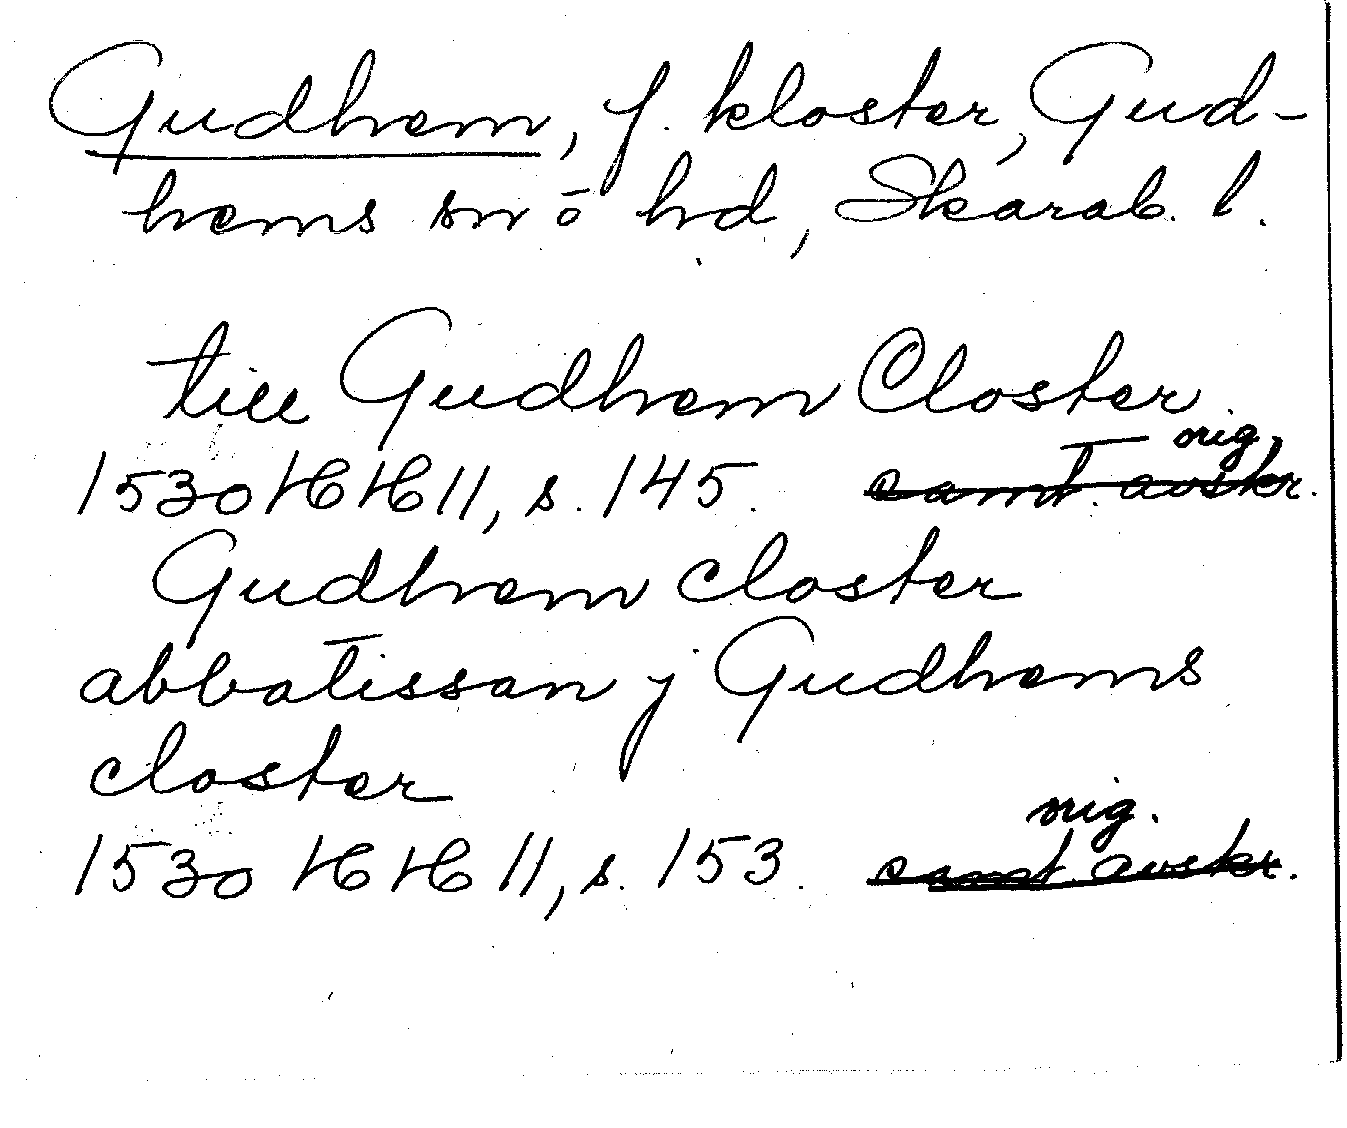 Gudhem, f. kloster, Gud-
hems sn ō hd, Skarab. l.
till Gudhem Closter
orig.
1530 HH 11, s. 145. samt. avskr.
Gudhem closter
abbatissan j Gudhems
closter
orig.
1530 HH 11, s. 153. samt. avskr.